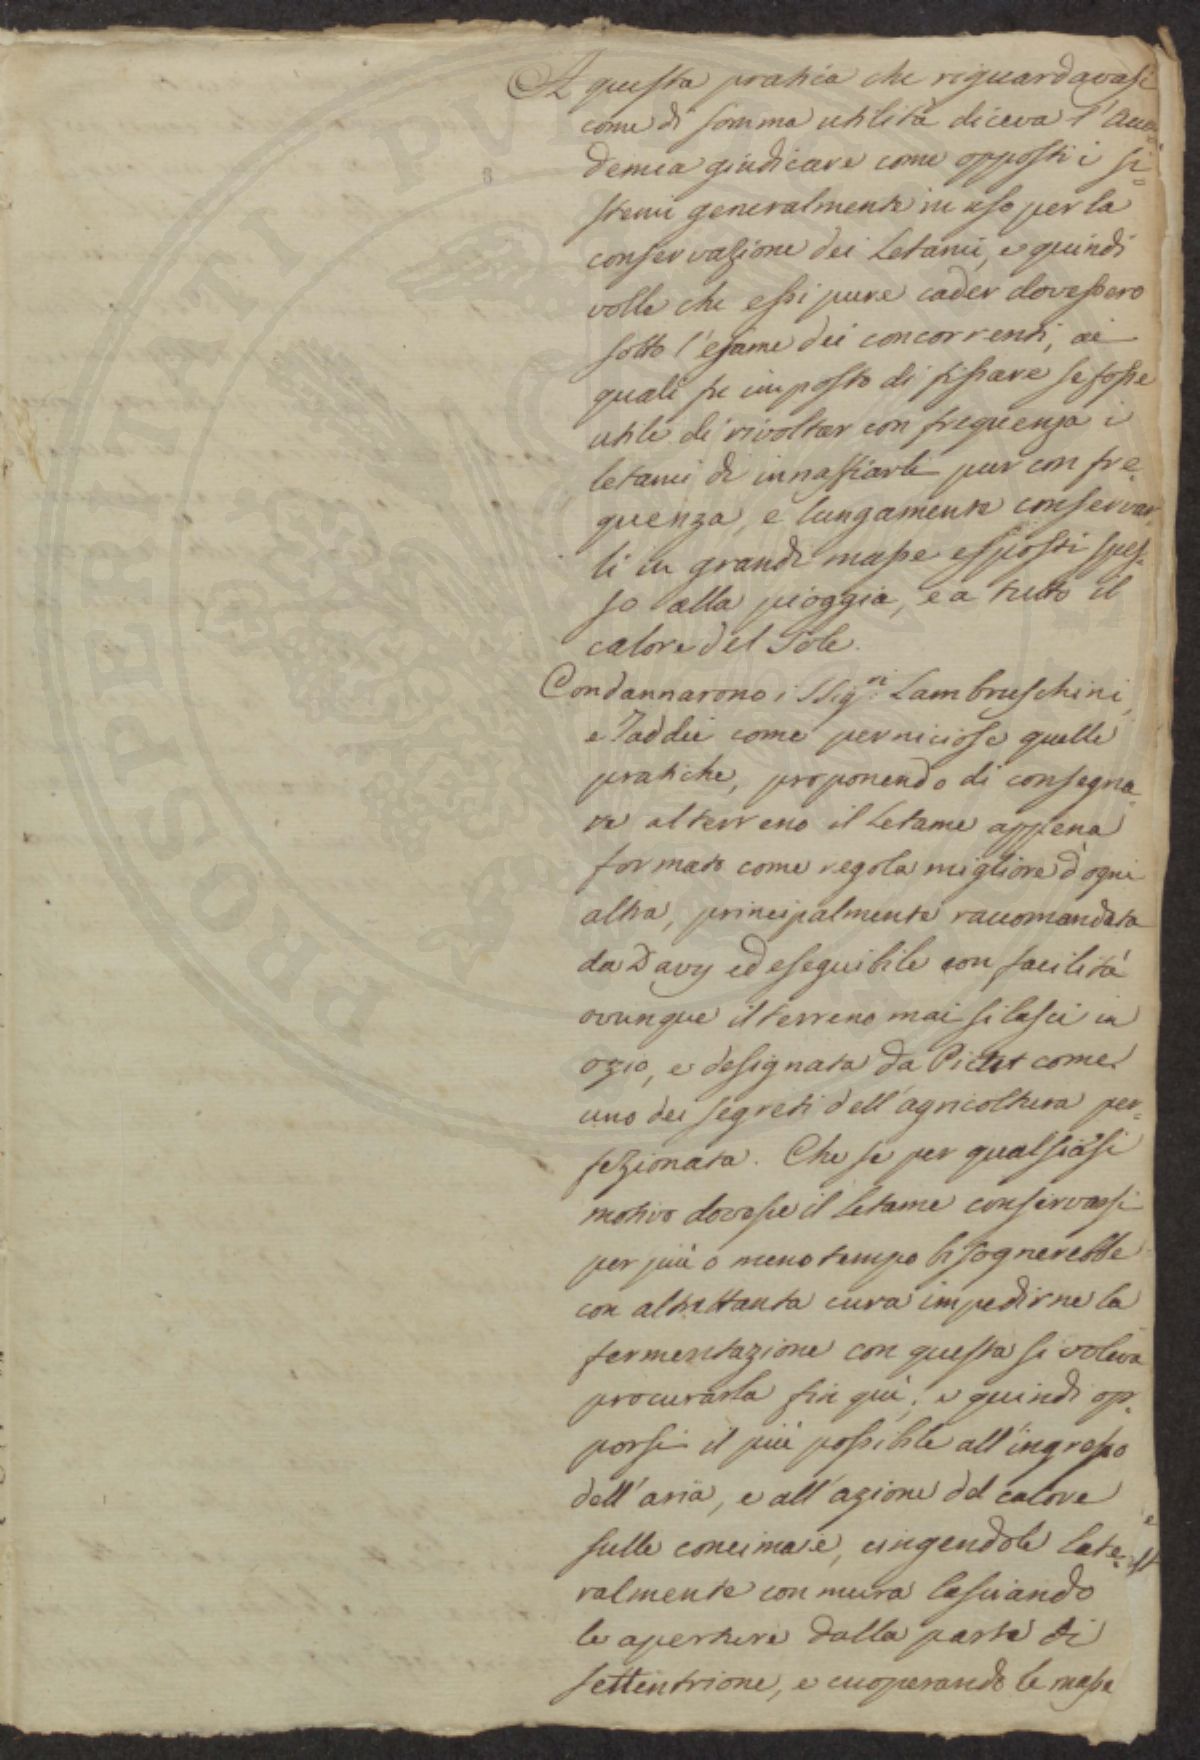 A questa pratica che riguardavasi
come di somma utilità diceva l'Acca
demia giudicare come opposti i si=
stemi generalmente in uso per la
conservazione dei Letami, e quindi
volle che essi pure cader dovessero
sotto l'esame dei concorrenti, ai
quali fu imposto di fissare se fosse
utile di rivoltar con frequenza i
letami di innaffiarli pur con fre=
quenza, e lungamente conservar
li in grandi masse esposti spes=
so alla pioggia, e a tutto il
calore del Sole.
Condannarono i SSig.ri Lambruschini,
e Taddei come perniciose quelle
pratiche, proponendo di consegna=
re al terreno il Letame appena
formato come regola migliore d'ogni
altra, principalmente raccomandata
da Davy ed eseguibile con facilità
ovunque il terreno mai si lasci in
ozio, e designata da Pictet come
uno dei segreti dell'agricoltura per=
fezionata. Che se per qualsiasi
motivo dovesse il Letame conservarsi
per più o meno tempo bisognerebbe
con altrettanta cura impedirne la
fermentazione con questa si voleva
procurarla fin qui; e quindi op=
porsi il più possibile all'ingresso
dell'aria, e all'azione del calore
sulle concimaie, cingendole late=
ralmente con mura lasciando
le aperture dalla parte di
settentrione, e cuoperando le masse
PROSPERITATI PVBLICAE